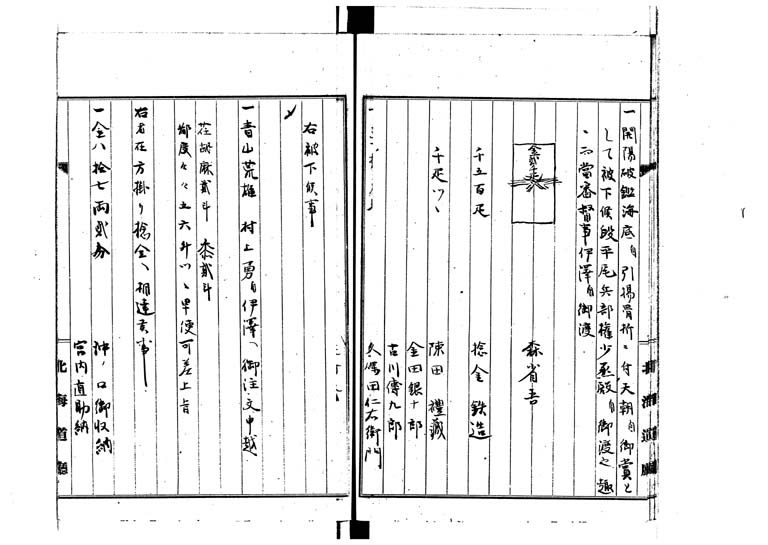 一開陽破艦海底ゟ引揚骨折ニ付天朝ゟ御賞と
して被下候段平尾兵部権少丞殿ゟ御渡之趣
ニ而當番督事伊澤ゟ御渡
森省吾
千五百疋 捻金鉄造
陳田禮蔵
千疋ツヽ 金田銀十郎
古川傳九郎
田仁右衛門
右被下候事
一青山荒雄 村上勇ゟ伊澤へ御注文申越
荏胡麻貳斗 黍貳斗
五六升ツヽ早便可差上旨
右者在方掛り捻金へ相達候事
一金八拾七両貳分 沖ノ口御収納
宮内直助納
北海道廳
北海道廳